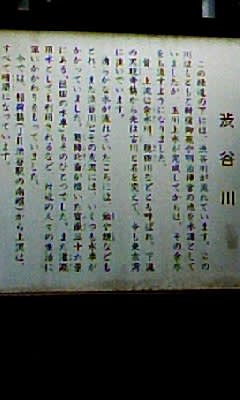 渋谷川
この緑道の下には、渋谷川が流れています。この
川はもともと新宿御苑や明治神宮の池を水源として
いましたが、玉川上水が完成してからは、その余水
をも流すようになりました。
昔、上流は余水川、隠田川などとも呼ばれ、下流
の天現寺橋から先は古川と名を変えて、今も東京湾
に注いでいます。
清らかな水が流れていたころには、鮎や鰻なども
とれ、また渋谷川とその支流には、いくつも水車が
かかっていました。葛飾北斎が描いた富嶽三十六景
にある「隠田の水車」もそのひとつでした。また灌漑
用水としても利用されるなど、付近の人々の生活に
深いかかわりをもっていました。
今では、稲荷橋（JR渋谷駅の南側）から上流は、
すべて暗渠になっています。